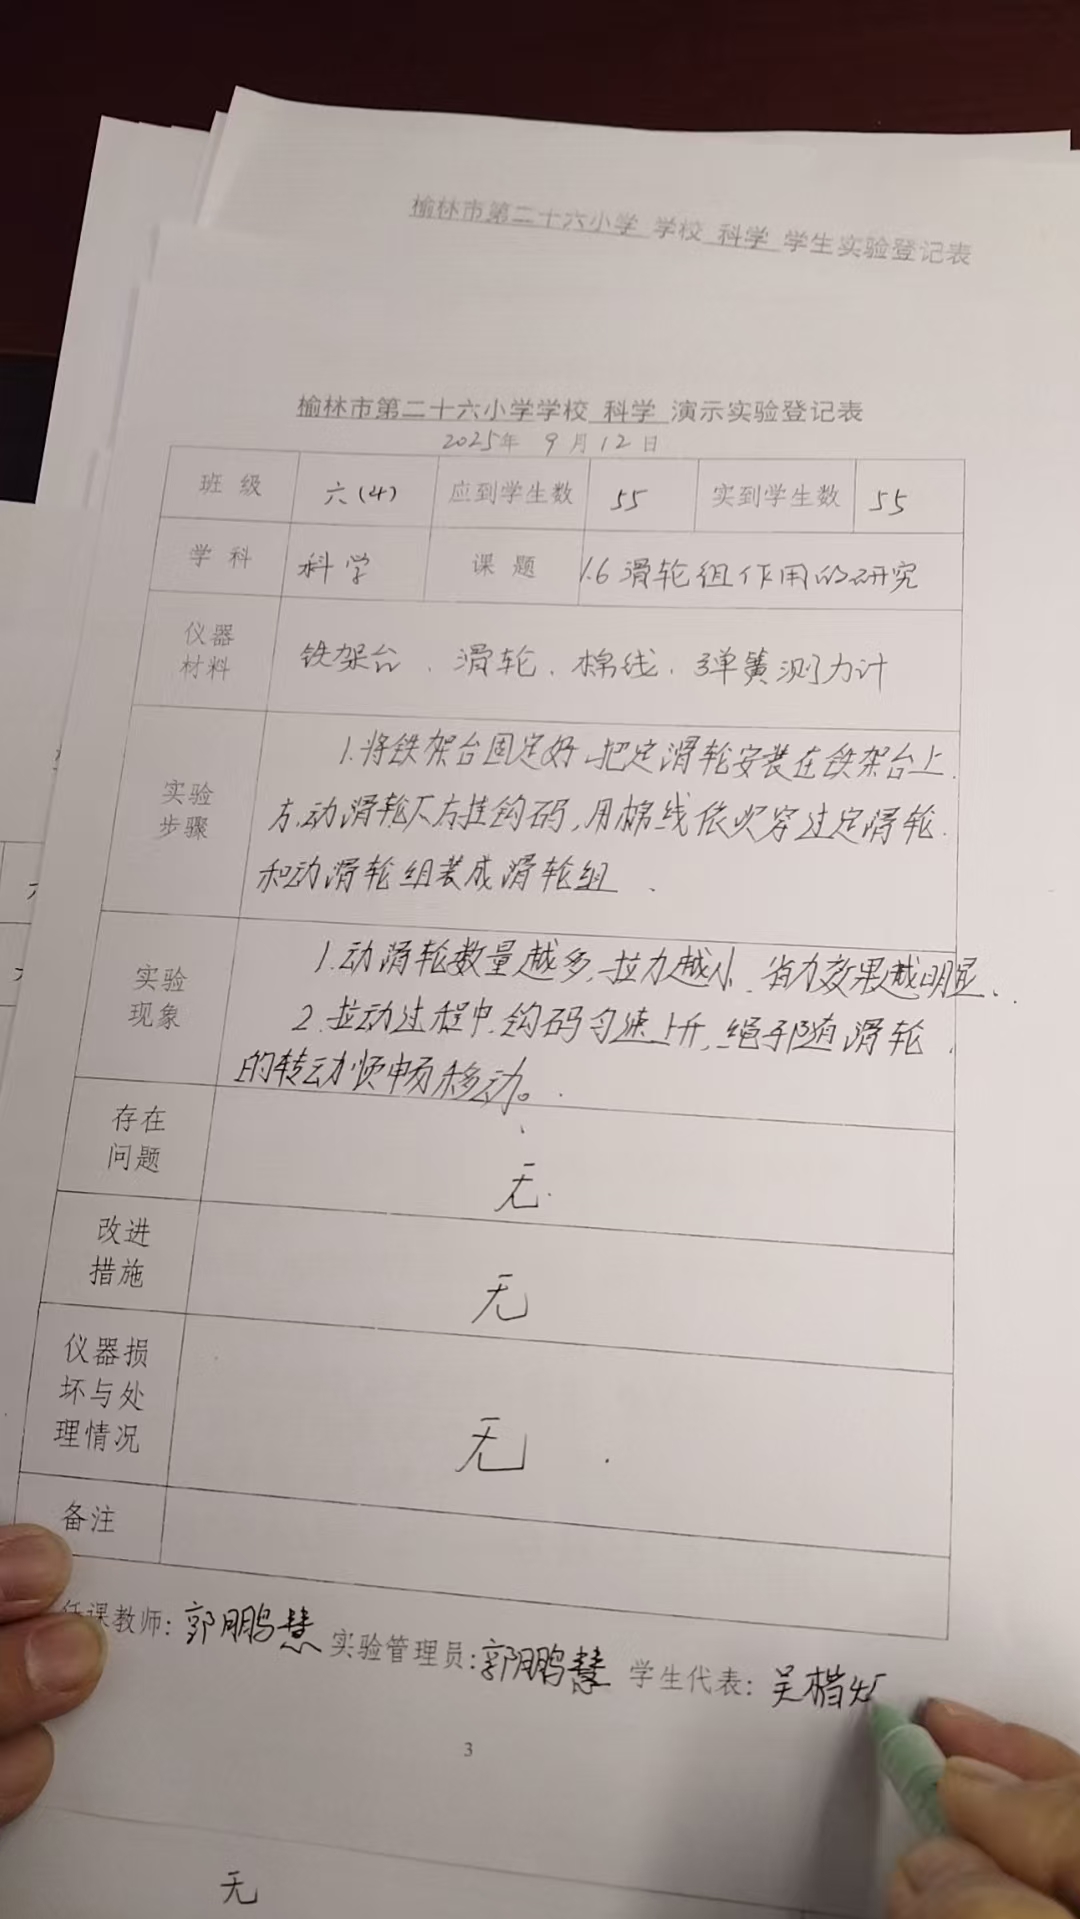 榆林市第二十六小学 学校 科学 学生实验登记表
榆林市第二十六小学学校 科学 演示实验登记表
2025年 9月12日
班级 六(4) 应到学生数 55 实到学生数 55
学科 科学 课题 1.6滑轮组作用的研究
仪器材料 铁架台、滑轮、棉线、弹簧测力计
实验步骤
1.将铁架台固定好,把定滑轮安装在铁架台上
方,动滑轮下方挂钩码,用棉线依次穿过定滑轮
和动滑轮组装成滑轮组
实验现象
1.动滑轮数量越多,拉力越小、省力效果越明显、
2.拉动过程中,钩码匀速上升,绳子随滑轮
的转动顺畅移动。
存在问题 无
改进措施 无
仪器损坏与处理情况 无
备注
任课教师:郭鹏慧 实验管理员:郭鹏慧 学生代表:吴楷
3
无